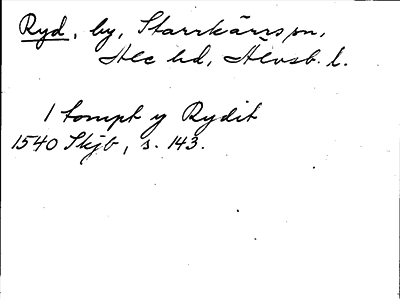 Ryd, by, Starrkärrs sn,
Ale hd, Älvsb. l.
1 tompt y Rydit
1540 Skjb, s. 143.